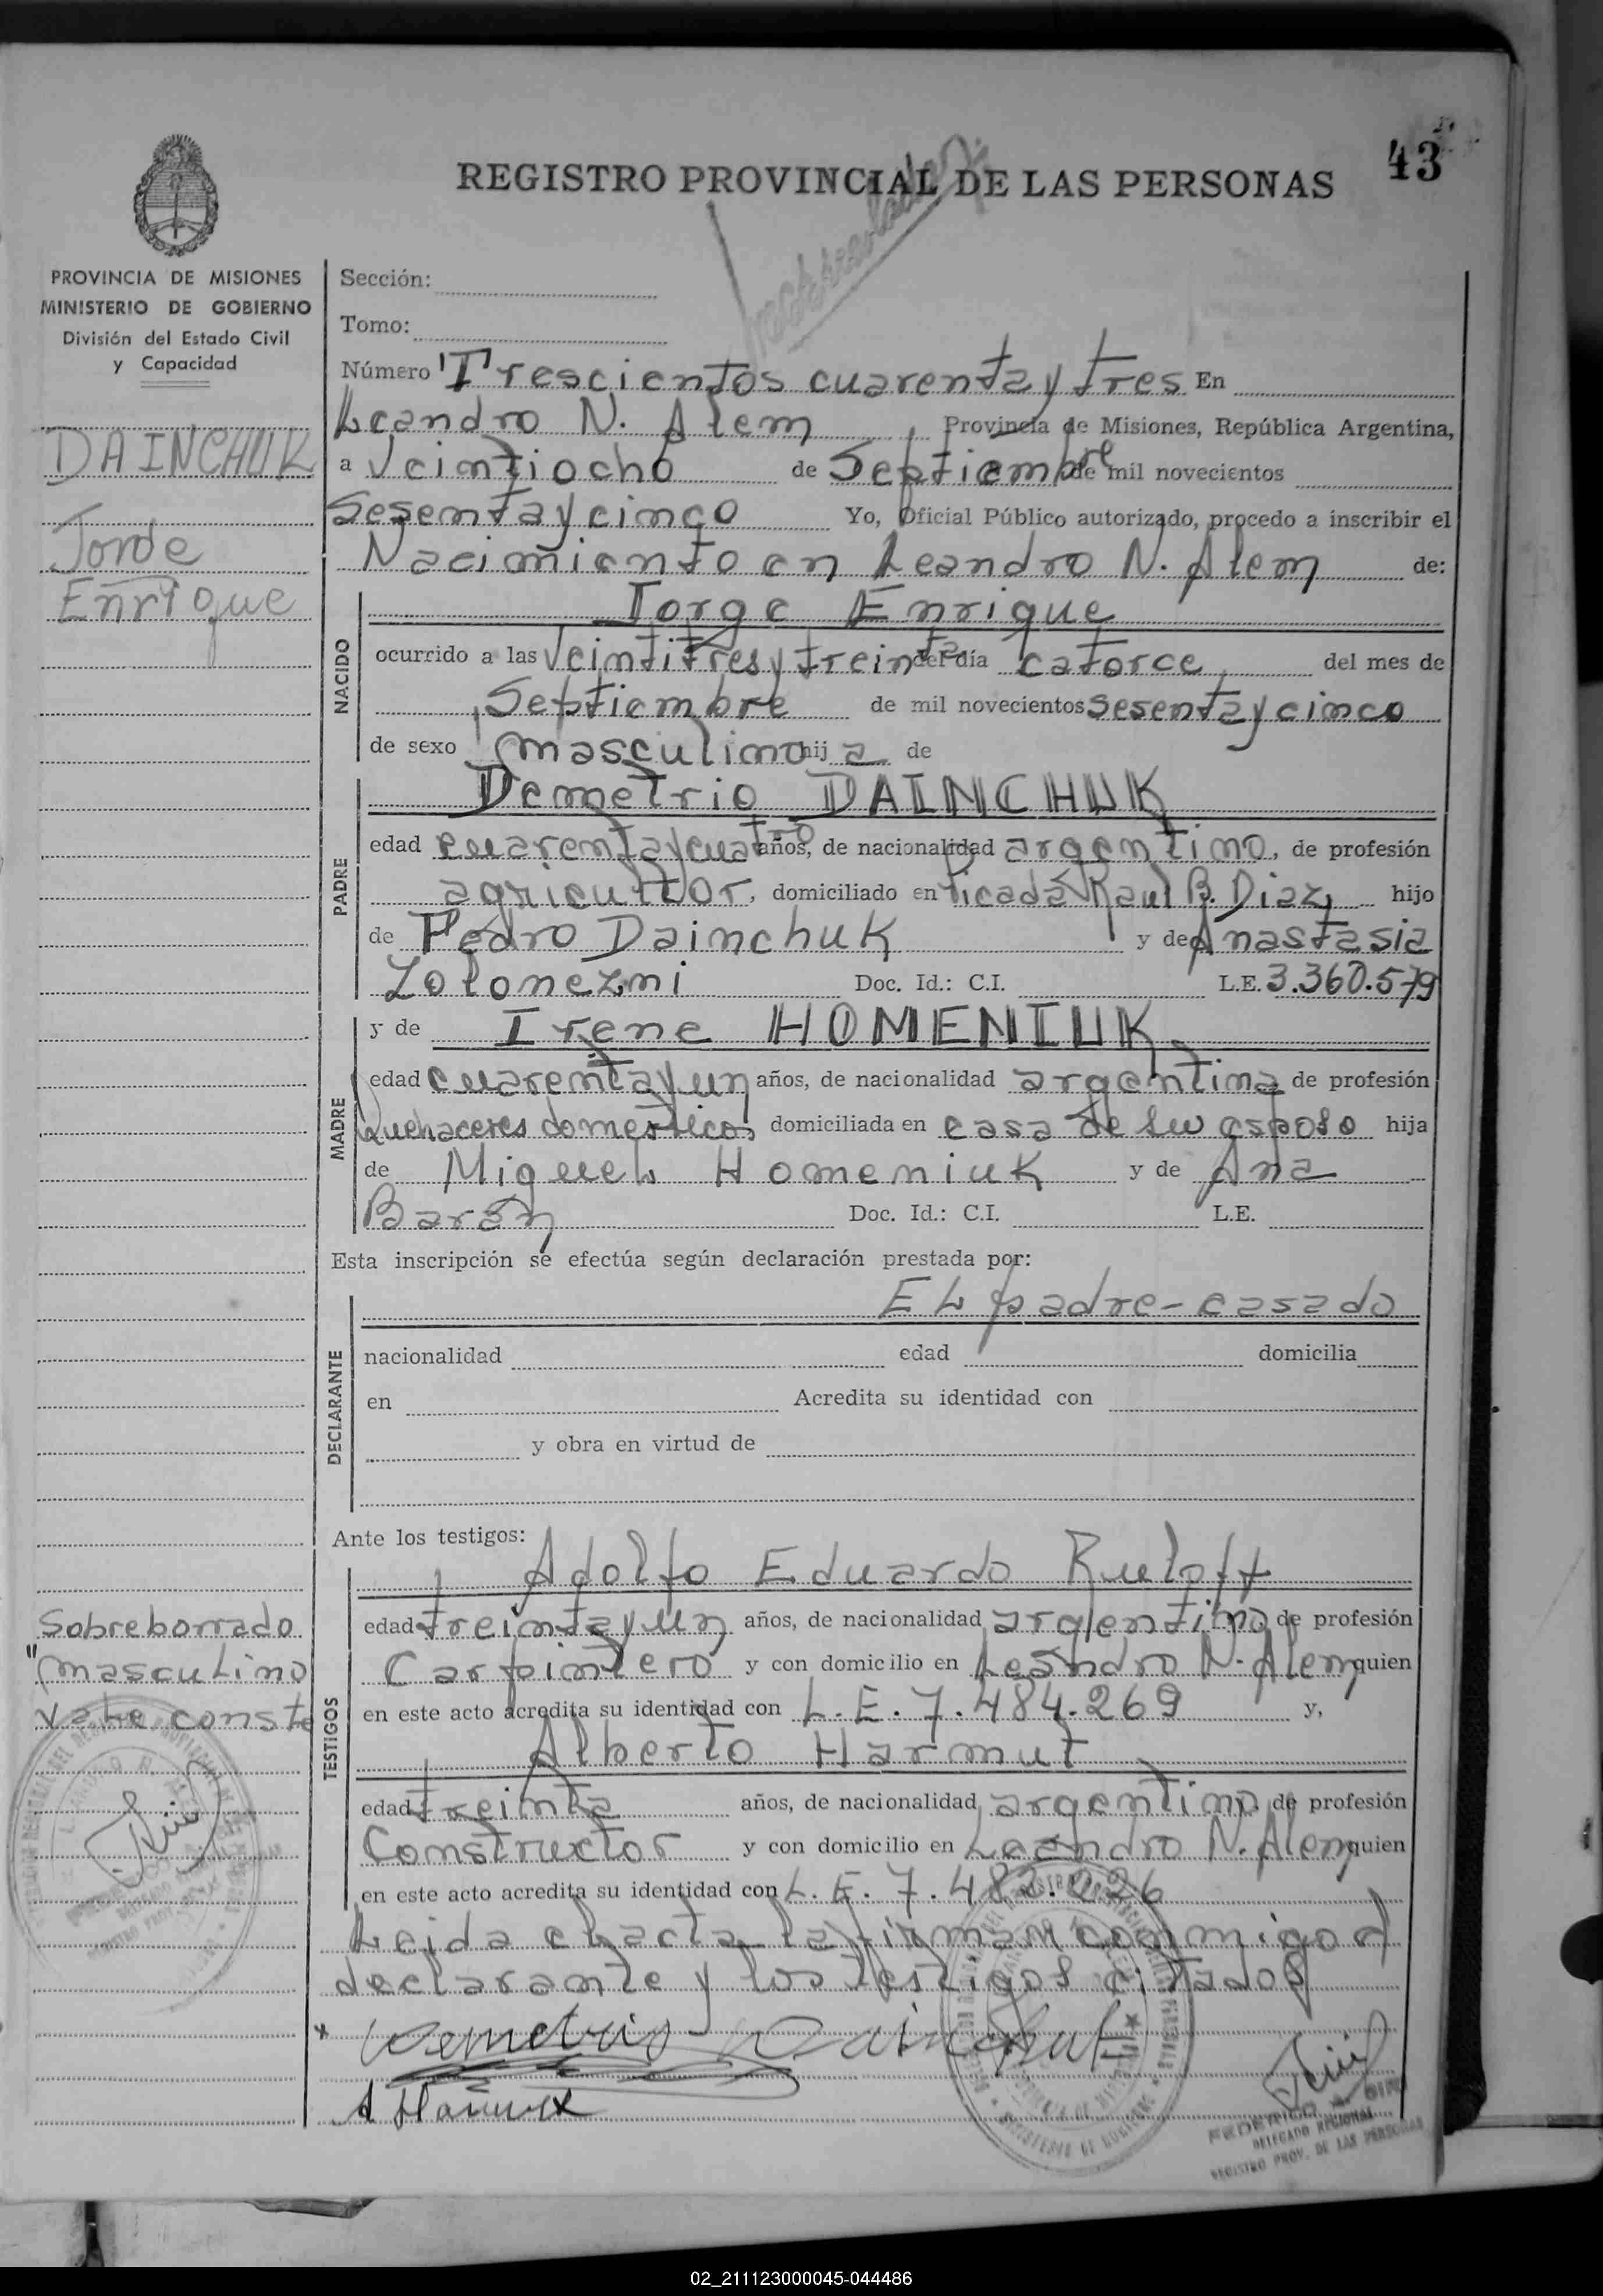 43
REGISTRO PROVINCIAL DE LAS PERSONAS
PROVINCIA DE MISIONES
MINISTERIO DE GOBIERNO
División del Estado Civil
y Capacidad
DAINCHUK
Jorde
Enrique
Sección:
Tomo:
Número Trescientos cuarenta y tres En
Leandro N. Alem Provincia de Misiones, República Argentina,
a Veintiocho de Septiembre de mil novecientos
Sesenta y cinco Yo, Oficial Público autorizado, procedo a inscribir el
Nacimiento en Leandro N. Alem de:
NACIDO
Jorge Enrique
ocurrido a las Veintitres y treinta del día catorce del mes de
Septiembre de mil novecientos sesenta y cinco
de sexo masculino hij a de
PADRE
Demetrio DAINCHUK
edad cuarenta y cuatro años, de nacionalidad argentino, de profesión
agricultor, domiciliado en Picada Raul B. Diaz, hijo
de Pedro Dainchuk y de Anastasia
Zolonezni Doc. Id.: C.I. L.E. 3.360.579
MADRE
y de Irene HOMENIUK,
edad cuarenta y un años, de nacionalidad argentina de profesión
Quehaceres domesticos domiciliada en casa de su esposo hija
de Miguel Homeniuk y de Ana
Barán Doc. Id.: C.I. L.E.
Esta inscripción se efectúa según declaración prestada por:
DECLARANTE
El padre - casado
nacionalidad edad domicilia
en Acredita su identidad con
y obra en virtud de
Ante los testigos:
TESTIGOS
Adolfo Eduardo Ruloff
edad treinta y un años, de nacionalidad argentino de profesión
Carpintero y con domicilio en Leandro N. Alem quien
en este acto acredita su identidad con L.E. 7.484.269 y,
Alberto Harmut
edad treinta años, de nacionalidad argentino, de profesión
Constructor y con domicilio en Leandro N. Alem quien
en este acto acredita su identidad con L.E. 7.482.226
Leida el acta la firman conmigo el
declarante y los testigos citados
Demetrio Dainchuk
A Harmut
DELEGADO REGIONAL
REGISTRO PROV. DE LAS PERSONAS
Sobreborrado
"masculino
Vale conste
02_211123000045-044486